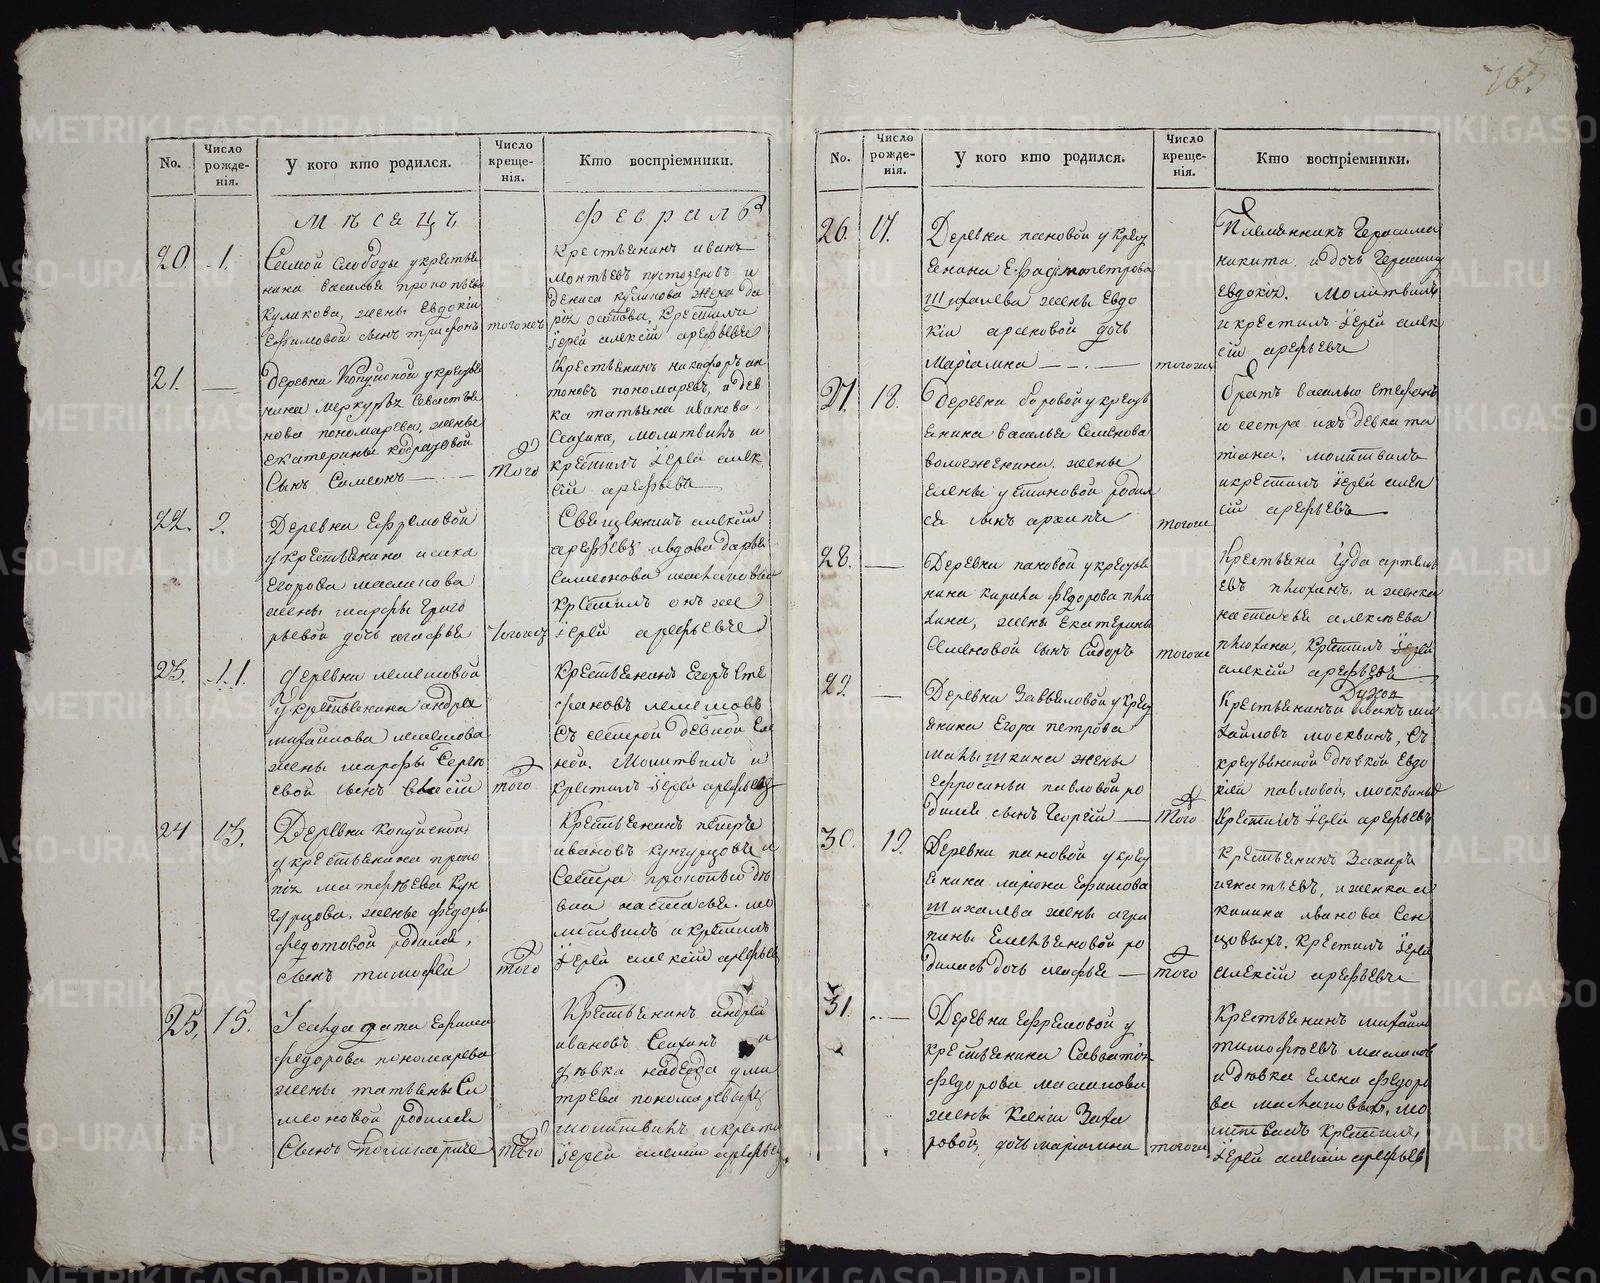 765
No.
Число рожде-нія.
У кого кто родился.
Число креще-нія.
Кто воспріемники.
Мѣсяцъ
Февраль
20.
1.
Самой слободы у крестья
нина василья прокопьева
куликова, жены Евдокіи
Ефимовой сынъ трифонъ
тогожъ
крестьянинъ иванъ
пустозеровъ и
дениса куликова жена да
крестилъ
іерей алексій арефьевъ
21.
—
деревни у кресть
нина меркурья севастья
нова пономарева, жены
екатерины
сынъ Симеонъ —
того
крестьянинъ никифоръ ан
тоновъ пономаревъ, и дев
ка татьяна иванова
молитвилъ и
крестилъ іерей алек
сій арефьевъ
22.
9.
Деревни Ефремовой
у крестьянина исака
Егорова маслакова
жены марфы григо
рьевой дочь агафья
тогожъ
Священникъ алексій
арефьевъ и вдова дарья
Симеонова
крестилъ онъ же
іерей арефьевъ
23.
11.
деревни лемешовой
у крестьянина андрея
михайлова лемешова
жены марфы Серге
евой сынъ василій
того
крестьянинъ Егоръ сте
фановъ лемешовъ
съ сестрой девкой Еле
ной. Молитвилъ и
крестилъ іерей арефьевъ
24
13.
Деревни
у крестьянина проко
пія матфѣева кун
гурцова. жены федоры
федотовой родился,
сынъ тимофей
того
Крестьянинъ петръ
ивановъ кунгурцовъ и
сестра прокопья дѣ
вка настасья. мо
литвилъ и крестилъ
іерей алексій арефьевъ
25.
15.
Ефима
федорова пономарева
жены татьяны Си
меоновой родился
сынъ
того
Крестьянинъ андрей
ивановъ и
дѣвка надежда дми
трева пономаревыхъ
молитвилъ и крести
іерей алексій арефьевъ
No.
Число рожде-нія.
У кого кто родился.
Число креще-нія.
Кто воспріемники.
26.
17.
Деревни пановой у крест
янина петрова
Шихалева жены Евдо
кіи арсеновой дочь
Маріамна — . —
тогожъ
Племянникъ Герасима
никита и дочь Герасима
Евдокія. Молитвилъ
и крестилъ іерей алек
сій арефьевъ
27.
18.
деревни боровой у кресть
янина василья Семенова
вологженина. жены
Елены устиновой родил
ся сынъ архипъ
тогожъ
братъ василью стефанъ
и сестра ихъ девка та
тиана. молитвилъ
и крестилъ іерей алек
сій арефьевъ
28.
—
Деревни пановой у кресть
нина кирила федорова плю
хина, жены Екатерины
Семеновой сынъ Сидоръ
тогожъ
Крестьяни Іуда артемь
евъ плюхинъ, и женка
настасья алексѣева
плюхина, крестилъ іерей
алексій арефьевъ
29.
—
Деревни Завьяловой у крест
янина Егора петрова
жены
Ефросиньи павловой ро
дился сынъ Георгій —
того
Крестьянинъ иванъ ми
хайловъ москвинъ, съ
крестьянской дѣвкой Евдо
кіей павловой, москвиныхъ
Крестилъ іерей арефьевъ
30.
19.
Деревни пановой у крест
янина ларіона Ефимова
шихалева жены агри
пины Емельяновой ро
дилась дочь агафья —
того
крестьянинъ Захаръ
игнатьевъ, и женка а
килина иванова Сен
цовыхъ. крестилъ іерей
алексій арефьевъ
31.
—
Деревни Ефремовой у
крестьянина Савватія
федорова маслакова
жены Ксеніи Заха
ровой, дочь маріамна
тогожъ
Крестьянинъ михайло
тимофѣевъ маслаковъ
и дѣвка Елена федоро
ва маслаковыхъ, мо
литвилъ крестилъ
іерей алексій арефьевъ